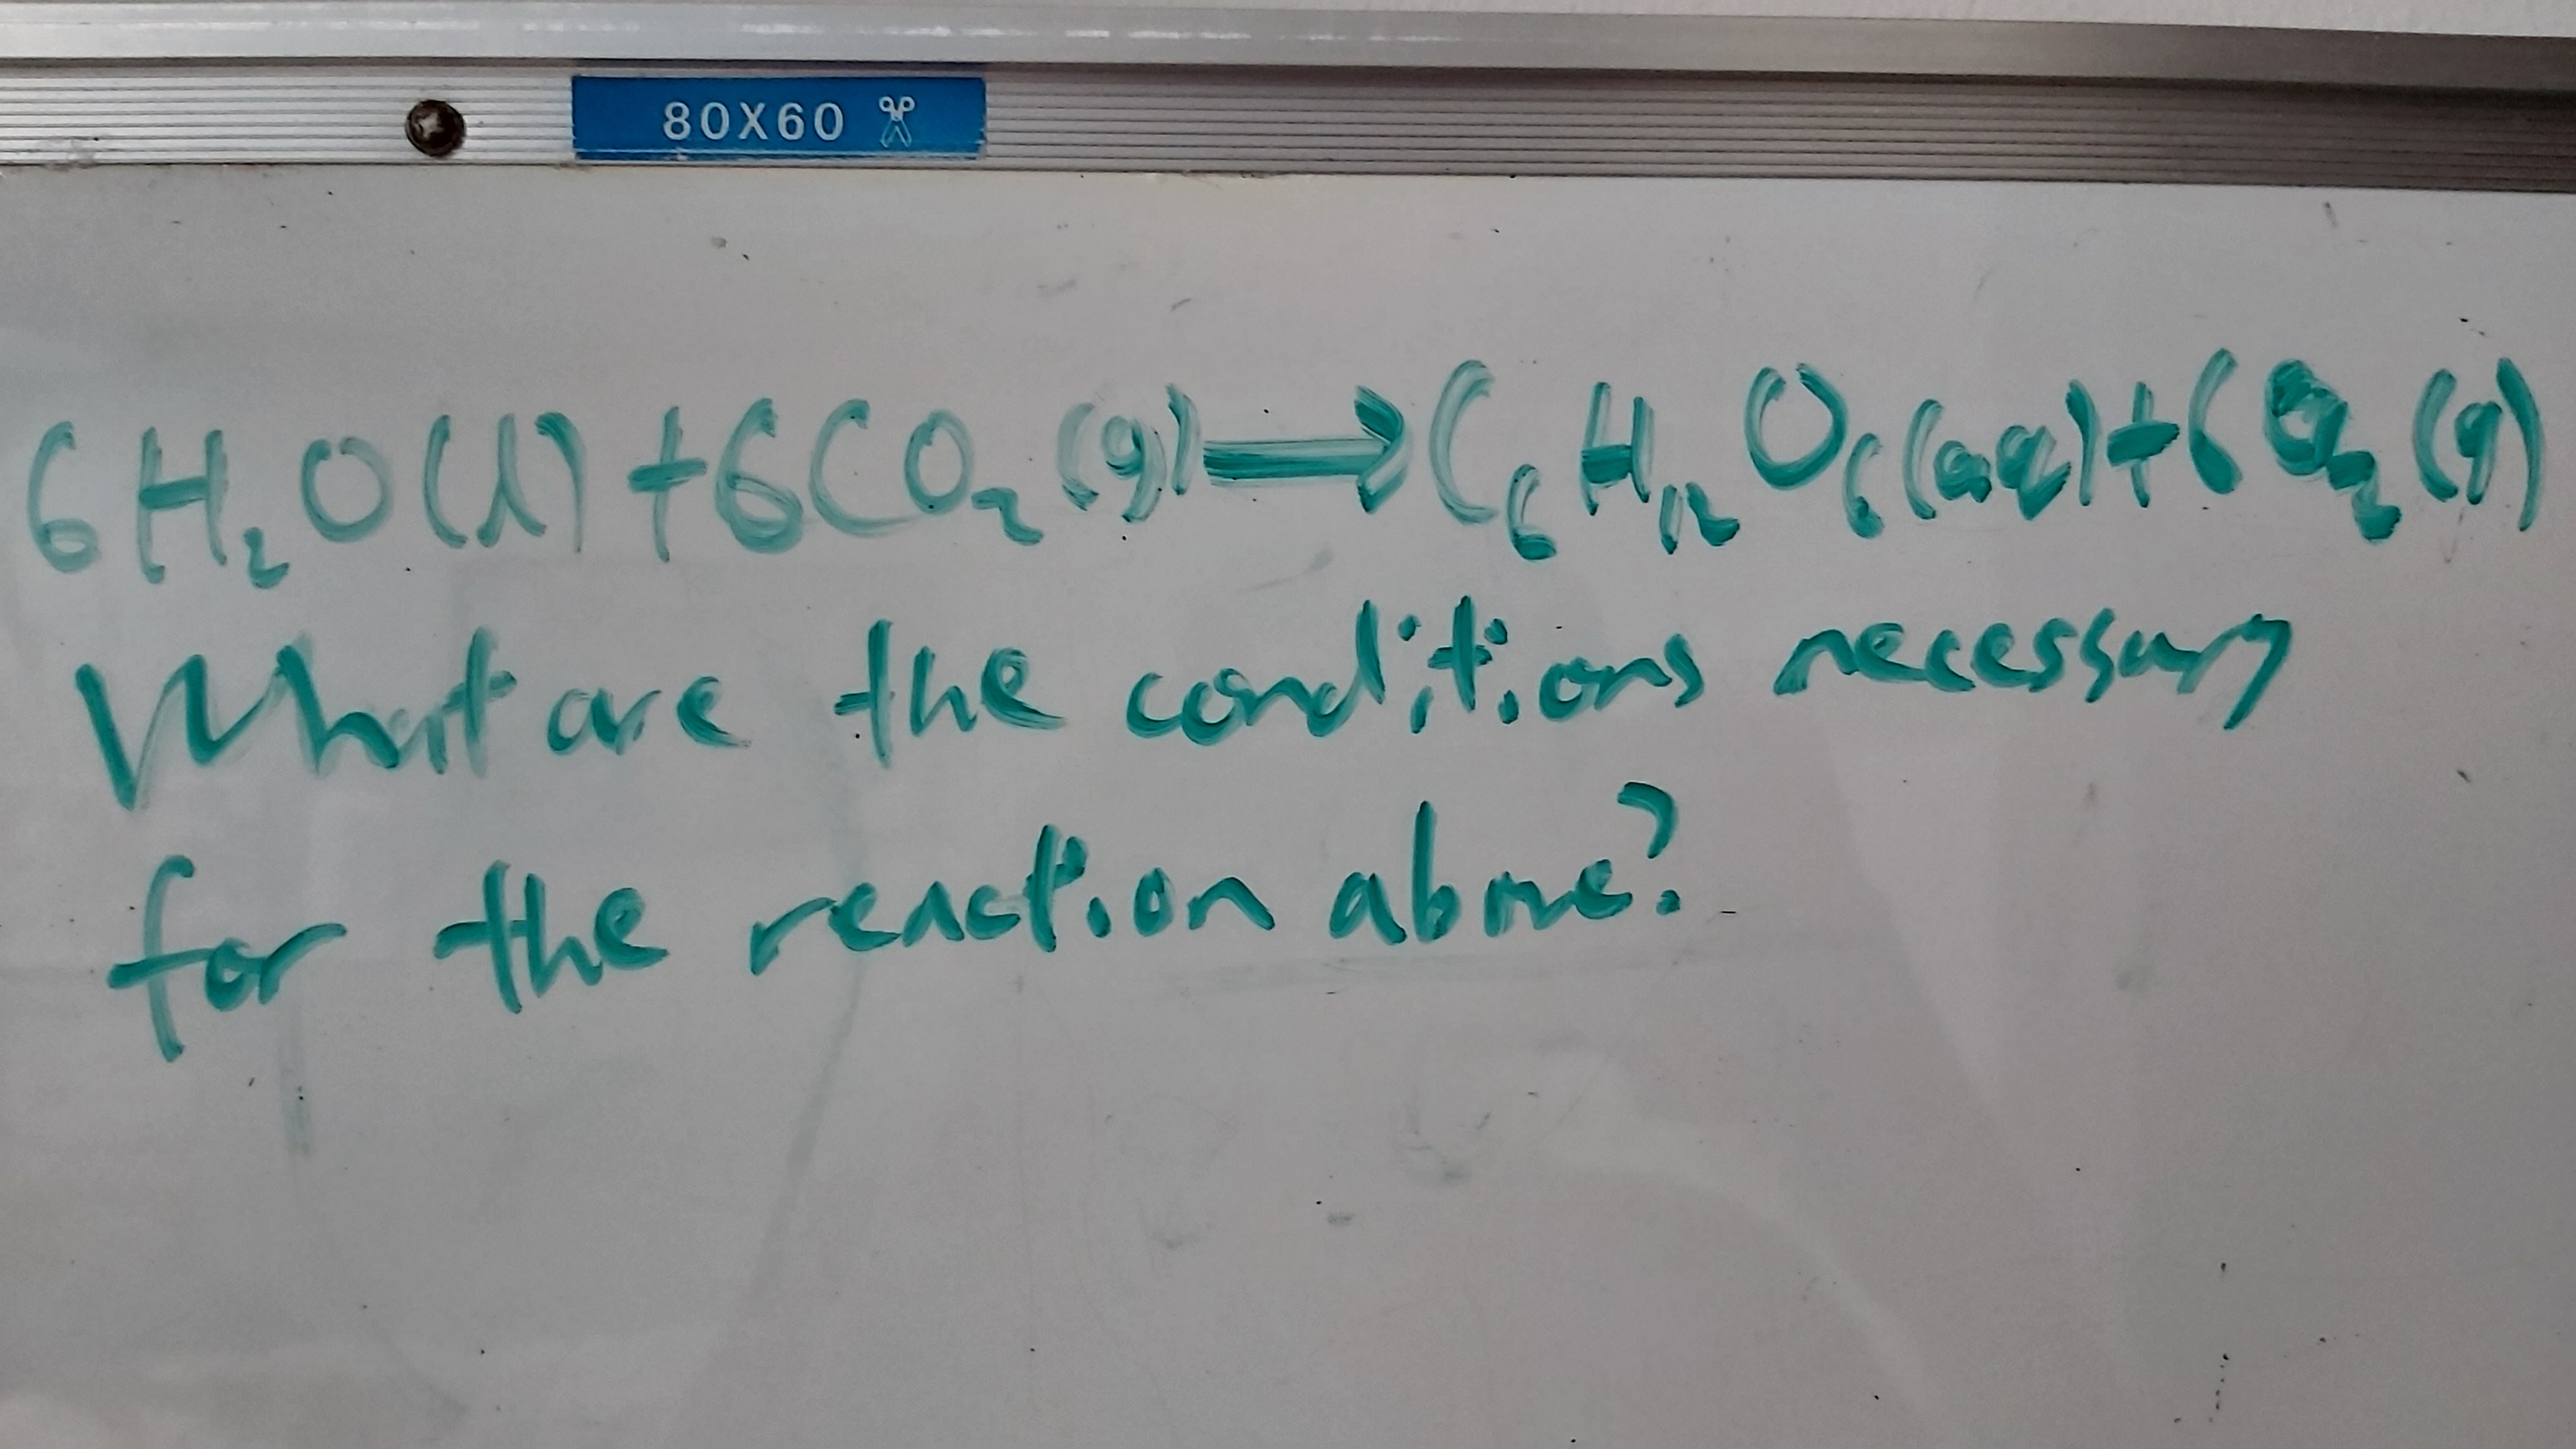 80X60
6H₂O(l)+6CO₂(g)→C₆H₁₂O₆(aq)+6O₂(g)
What are the conditions necessary
for the reaction above?